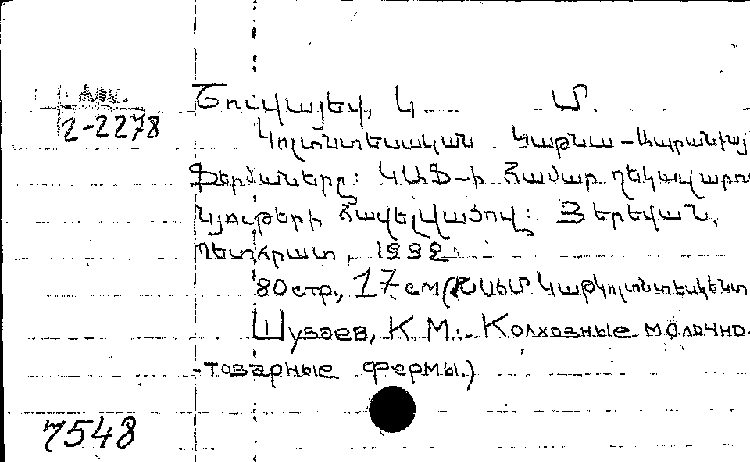 Арм.
2-2278
Շուվայեվ, Կ. Մ.
Կոլտնտեսական կաթնա-ապրանքայ
ֆերմաները: ԿԱՖ-ի համար ղեկավարո
նյութերի հավելվածով: Յերեվան,
Պետհրատ, 1932.
80 стр., 17 см (ԽՍԽՄ. Կաթկոլտնտեսկենտ
Шуваев, К. М.: Колхозные молочно-
-товарные фермы.)
7548